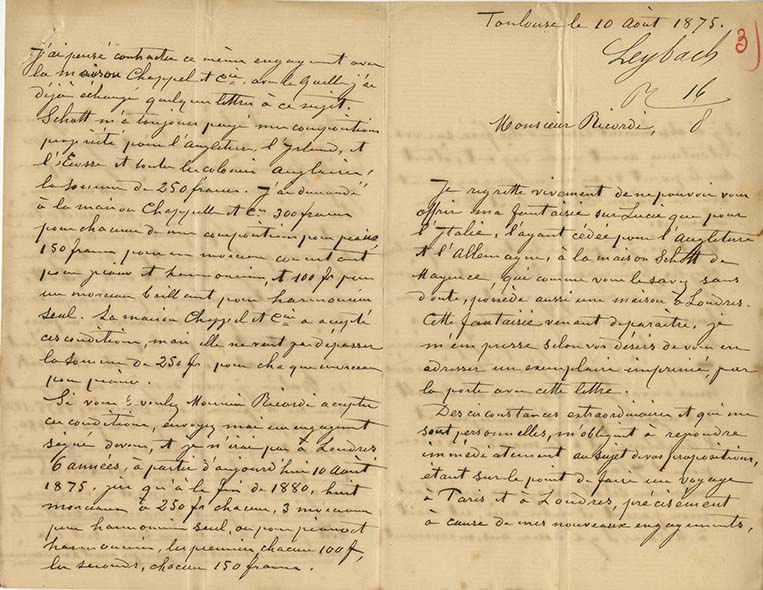 Toulouse le 10 Août 1875.
3)
Leybach
R 16
8
Monsieur Ricordi,
Je regrette vivement de ne pouvoir vous
offrir ma fantaisie sur Lucie que pour
l'Italie, l'ayant cédée pour l'Angleterre
et l'Allemagne, à la maison Schott de
Mayence, qui comme vous le savez sans
doute, possède aussi une maison à Londres.
Cette fantaisie venant de paraître, je
m'empresse selon vos désirs de vous en
adresser un exemplaire imprimé, par
la poste avec cette lettre.
Des circonstances extraordinaires et qui me
sont personnelles, m'obligent à répondre
immédiatement au sujet de vos propositions,
étant sur le point de faire un voyage
à Paris et à Londres, précisement
à cause de mes nouveaux engagements,
j'ai pensé contracter ce même engagement avec
la maison Chappel et Cie, avec laquelle j'ai
déjà échangé quelques lettres à ce sujet.
Schott m'a toujours payé mes compositions
propriété pour l'Angleterre, l'Irlande, et
l'Écosse et toutes les colonies anglaises,
la somme de 250 francs. J'ai demandé
à la maison Chappelle et Cie 300 francs
pour chacune de mes compositions pour piano,
150 francs pour un morceau concertant
pour piano et harmonium, et 100 fr pour
un morceau brillant pour harmonium
seul. La maison Chappel et Cie a accepté
ces conditions, mais elle ne veut pas dépasser
la somme de 250 fr pour chaque morceau
pour piano.
Si vous voulez Monsieur Ricordi accepter
ces conditions, envoyez moi un engagement
signé de vous, et je n'irai pas à Londres
6 années, à partir d'aujourd'hui 10 Août
1875. jusqu'à la fin de 1880, huit
morceaux à 250 fr chacun, 3 morceaux
pour harmonium seul, ou pour piano et
harmonium, les premiers chacun 100 f,
les seconds, chacun 150 francs.